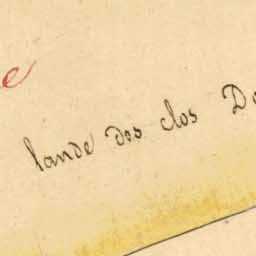 e
lande dos clos Do